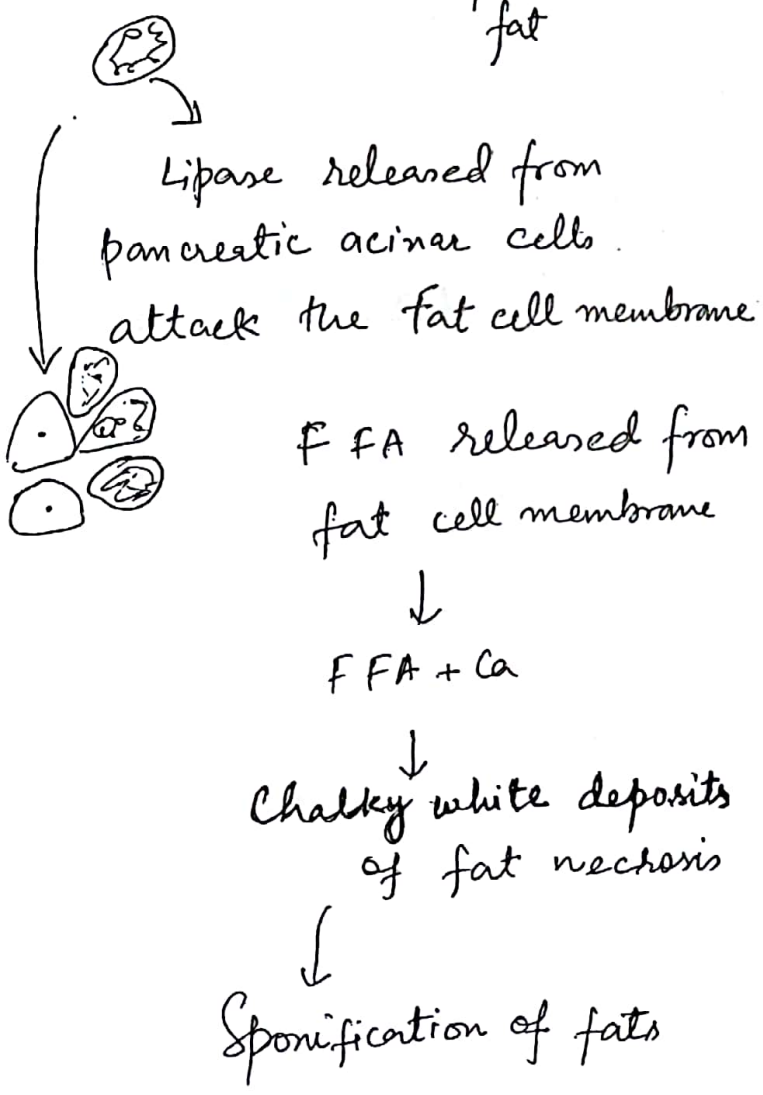 fat
Lipase released from
pancreatic acinar cells.
attack the fat cell membrane
F FA released from
fat cell membrane
↓
F FA + Ca
↓
Chalky white deposits
of fat necrosis
↓
Sponification of fats